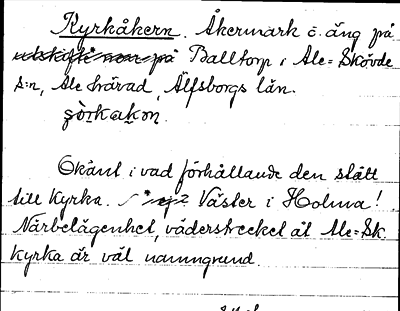 Kyrkåkern. Åkermark o. äng på
utskifte från på Balltorp i Ale=Skövde
s:n, Ale härad, Älfsborgs län.
Okänt i vad förhållande den stått
till kyrka. Väster i Holma!
Närbelägenhet, väderstrecket åt Ale=Sk.
kyrka är väl namngrund.